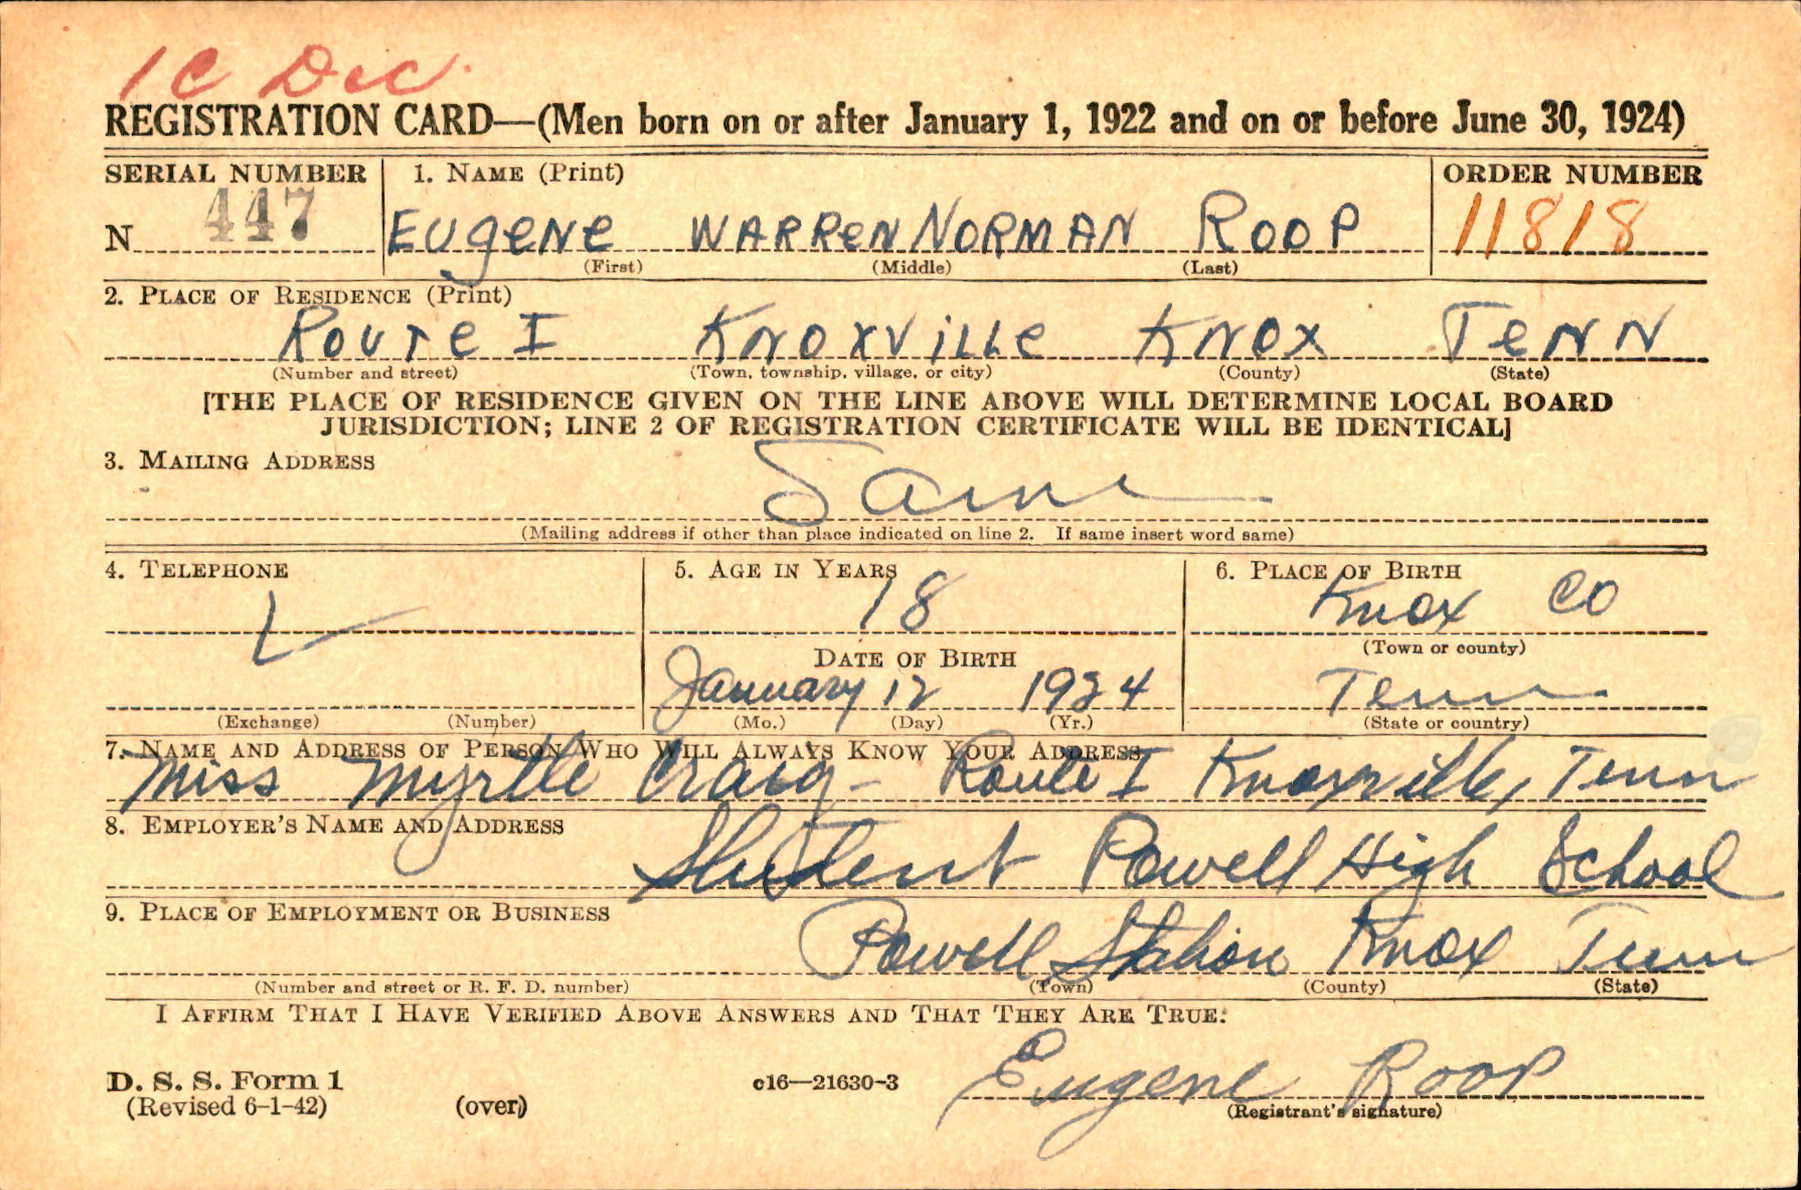 1C Dec
REGISTRATION CARD—(Men born on or after January 1, 1922 and on or before June 30, 1924)
SERIAL NUMBER 1. NAME (Print) ORDER NUMBER
N 447 EUgeNe WARReN NORMAN ROOP 11818
(First) (Middle) (Last)
2. PLACE OF RESIDENCE (Print)
ROUTe I KNOXViLLe KNOX TeNN
(Number and street) (Town, township, village, or city) (County) (State)
[THE PLACE OF RESIDENCE GIVEN ON THE LINE ABOVE WILL DETERMINE LOCAL BOARD
JURISDICTION; LINE 2 OF REGISTRATION CERTIFICATE WILL BE IDENTICAL]
3. MAILING ADDRESS
Same
(Mailing address if other than place indicated on line 2. If same insert word same)
4. TELEPHONE 5. AGE IN YEARS 6. PLACE OF BIRTH
18 Knox CO
DATE OF BIRTH (Town or county)
January 12 1924 Tenn
(Exchange) (Number) (Mo.) (Day) (Yr.) (State or country)
7. NAME AND ADDRESS OF PERSON WHO WILL ALWAYS KNOW YOUR ADDRESS
Miss Myrtle Craig - Route I Knoxville, Tenn
8. EMPLOYER'S NAME AND ADDRESS
Student Powell High School
9. PLACE OF EMPLOYMENT OR BUSINESS
Powell Station Knox Tenn
(Number and street or R. F. D. number) (Town) (County) (State)
I AFFIRM THAT I HAVE VERIFIED ABOVE ANSWERS AND THAT THEY ARE TRUE.
Eugene Roop
D. S. S. Form 1 c16—21630-3
(Revised 6-1-42) (over) (Registrant's signature)